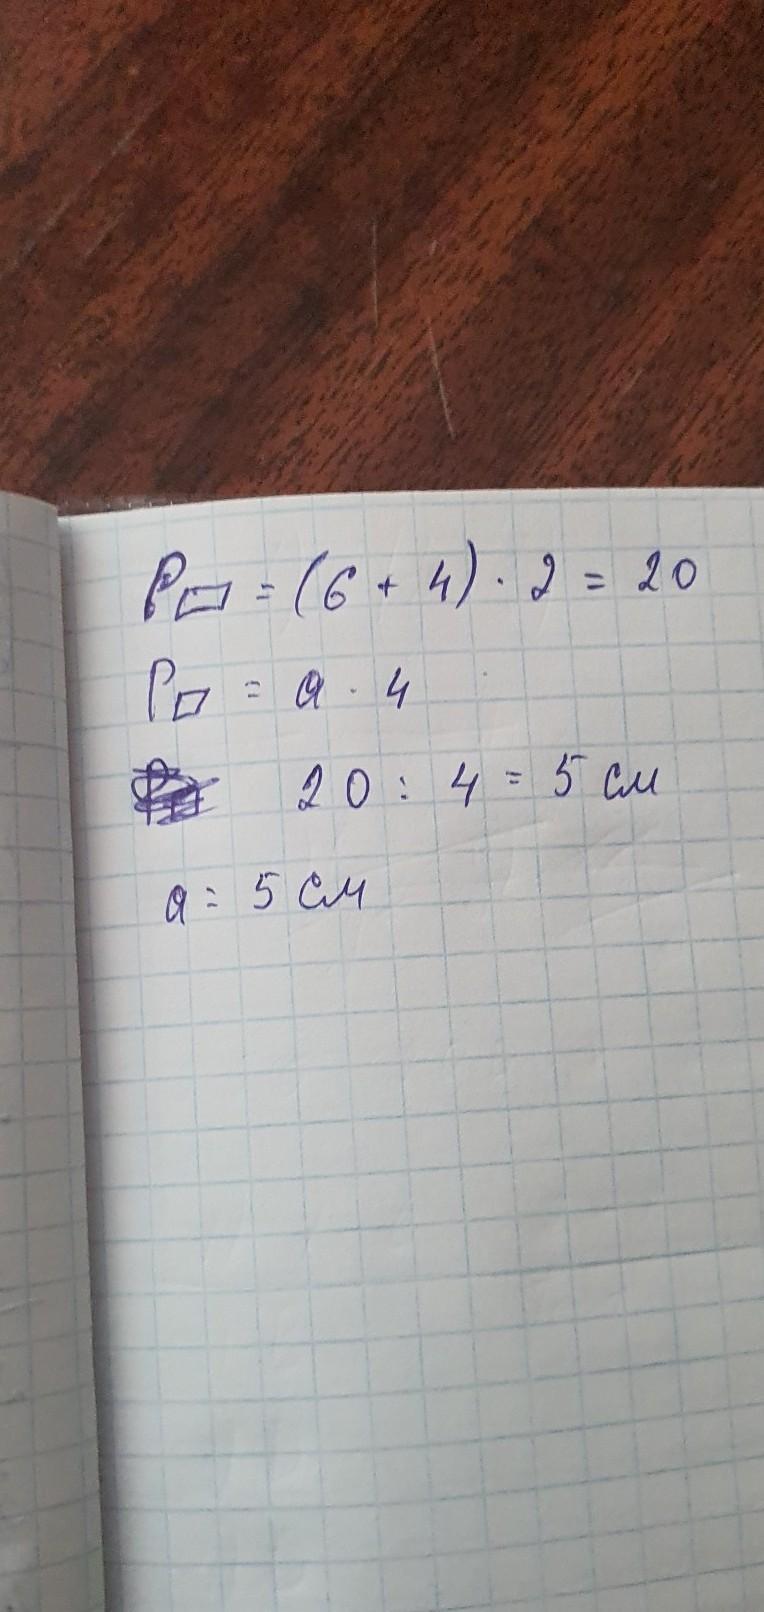 P▭ = (6 + 4) · 2 = 20
P▱ = a · 4
20 : 4 = 5 см
a = 5 см